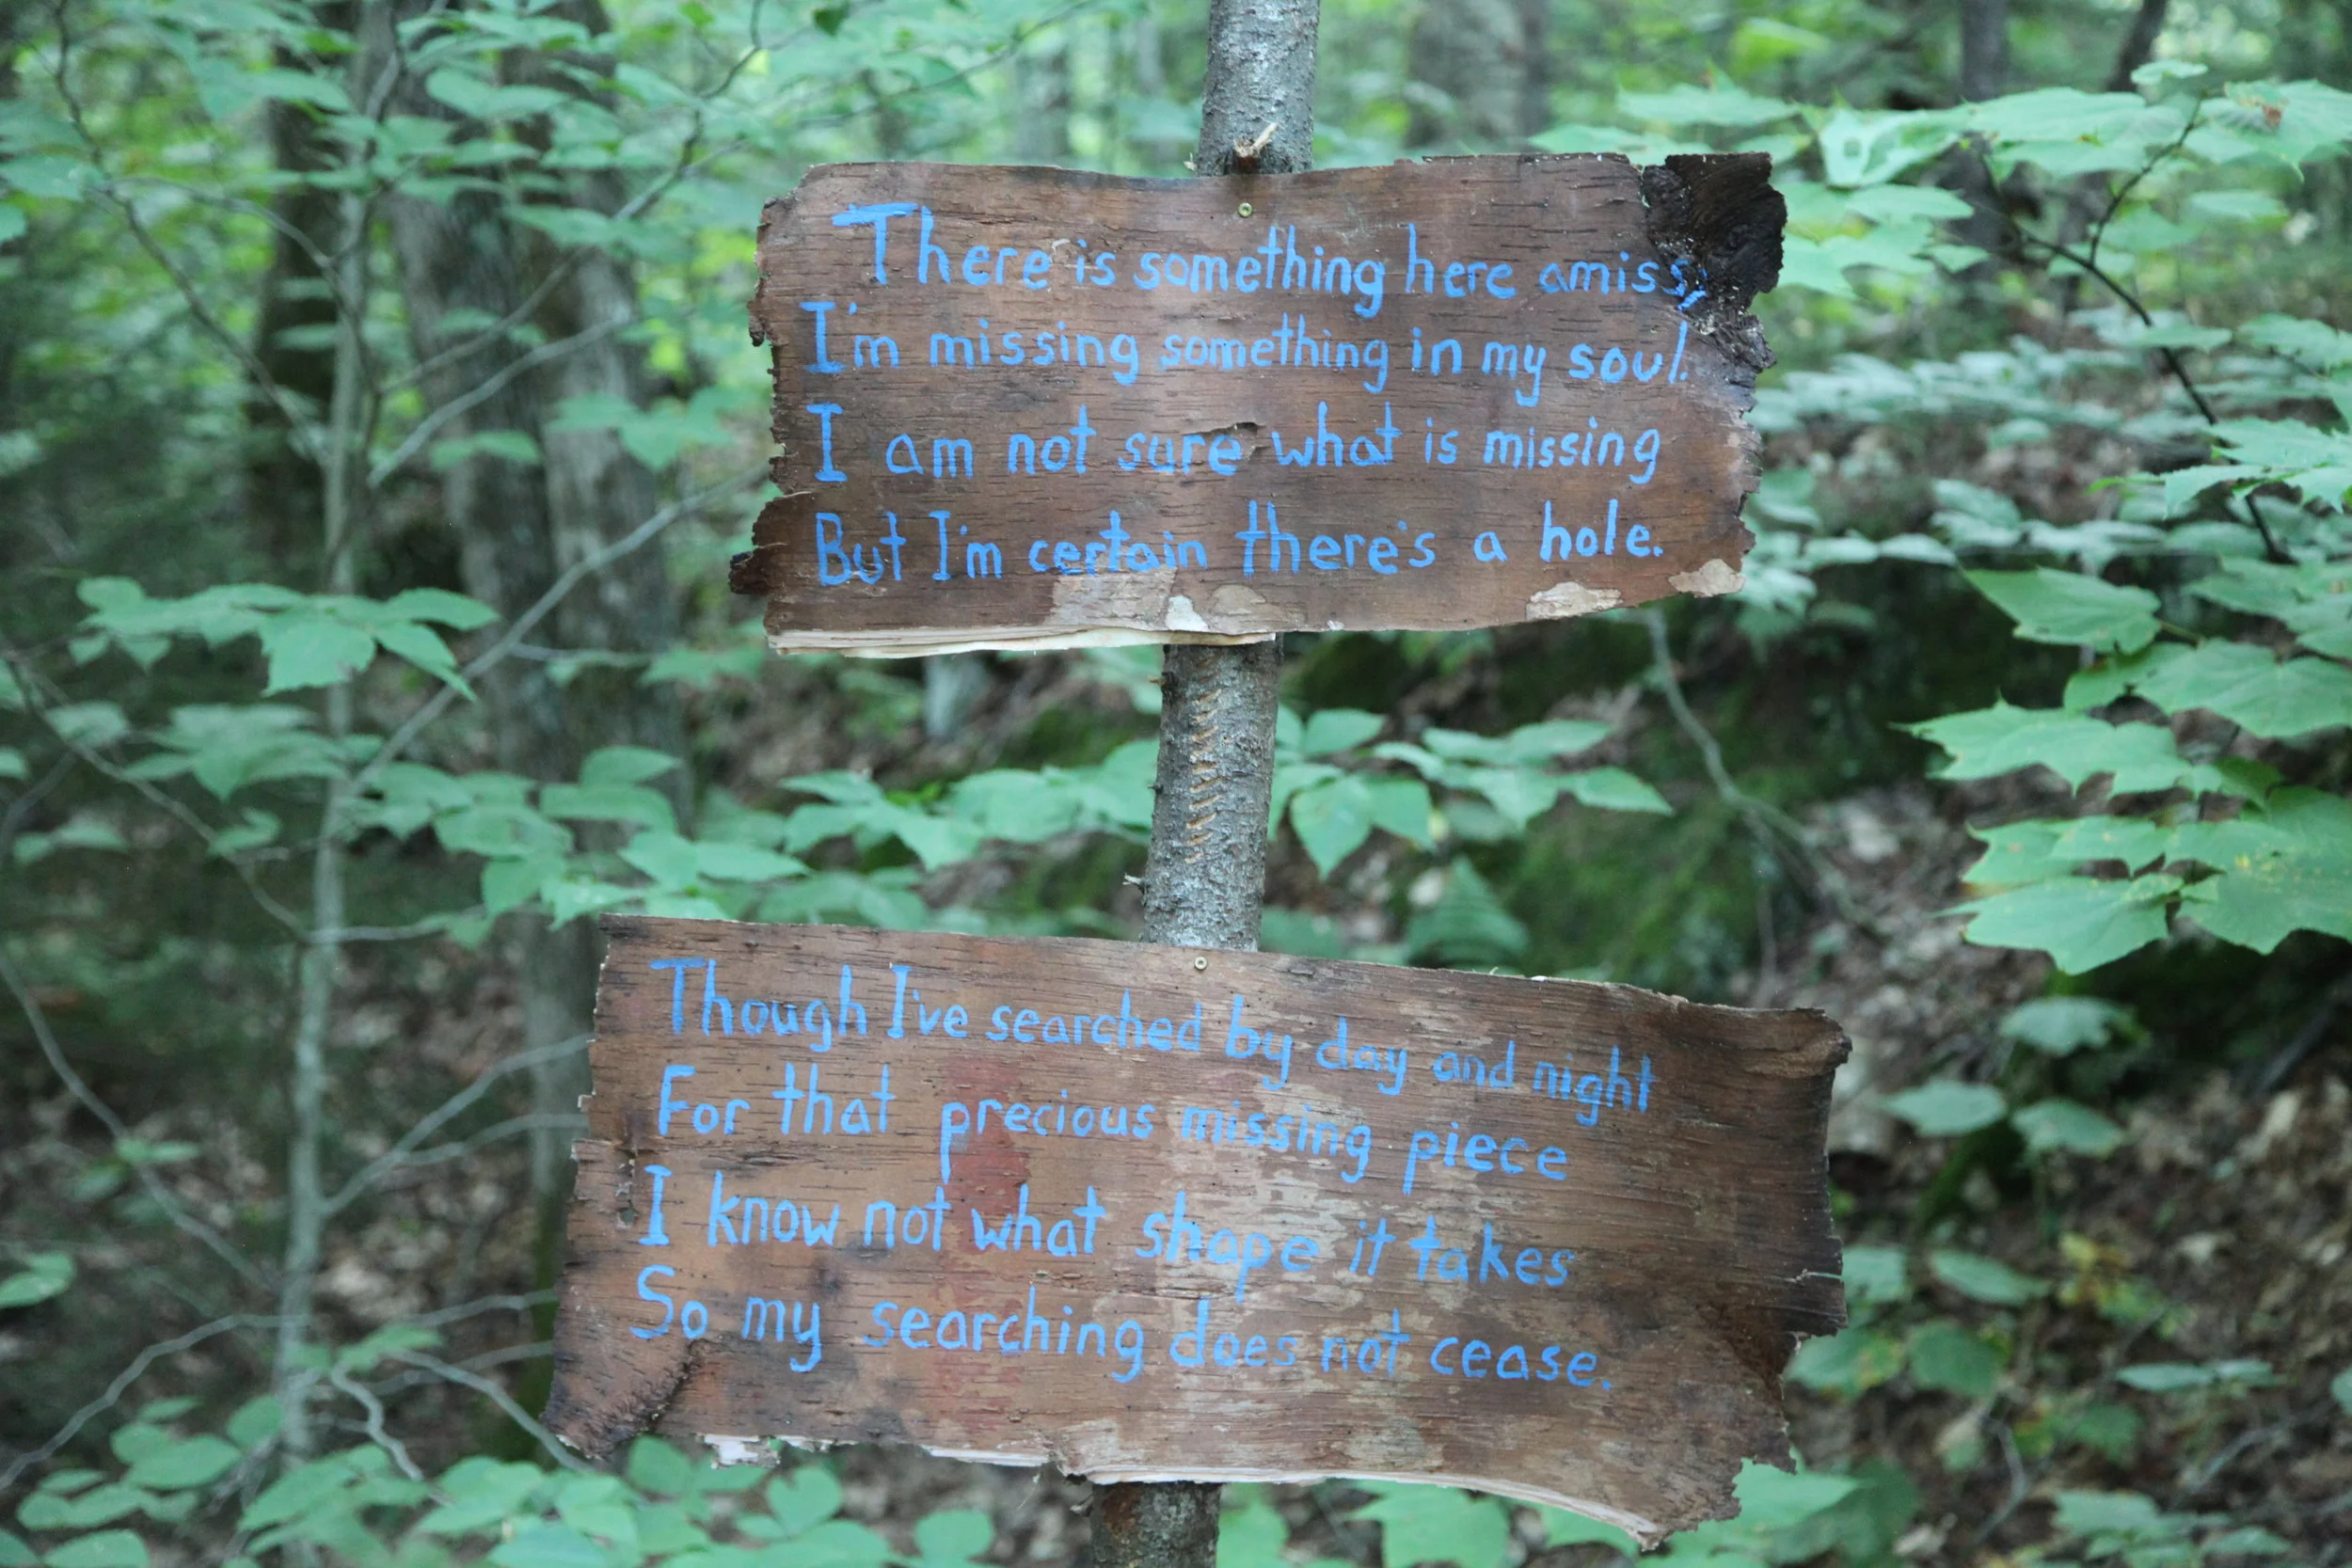 There is something here amiss,
I'm missing something in my soul.
I am not sure what is missing
But I'm certain there's a hole.
Though I've searched by day and night
For that precious missing piece
I know not what shape it takes
So my searching does not cease.